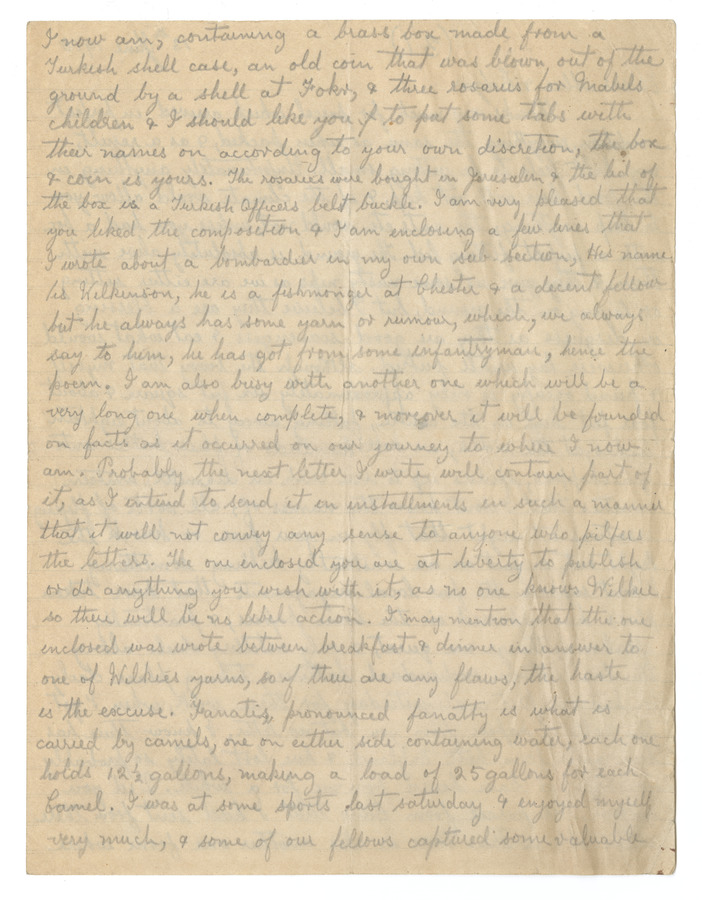 I now am, containing a brass box made from a
Turkish shell case, an old coin that was blown out of the
ground by a shell at Fokr, & three rosaries for Mabels
children & I should like you to put some tabs with
their names on according to your own discretion, the box
& coin is yours. The rosaries were bought in Jerusalem & the lid of
the box is a Turkish Officers belt buckle. I am very pleased that
you liked the composition & I am enclosing a few lines that
I wrote about a bombardier in my own sub-section, His name
is Wilkinson, he is a fishmonger at Chester & a decent fellow
but he always has some yarn or rumour, which, we always
say to him, he has got from some infantryman, hence the
poem. I am also busy with another one which will be a
very long one when complete, & moreover it will be founded
on facts as it occurred on our journey to where I now
am. Probably the next letter I write will contain part of
it, as I intend to send it in installments in such a manner
that it will not convey any sense to anyone who pilfers
the letters. The one enclosed you are at liberty to publish
or do anything you wish with it, as no one knows Wilkie
so there will be no libel action. I may mention that the one
enclosed was wrote between breakfast & dinner in answer to
one of Wilkies yarns, so if there are any flaws, the haste
is the excuse. Fanatis, pronounced fanatty is what is
carried by camels, one on either side containing water, each one
holds 12½ gallons, making a load of 25 gallons for each
Camel. I was at some sports last saturday & enjoyed myself
very much, & some of our fellows captured some valuable